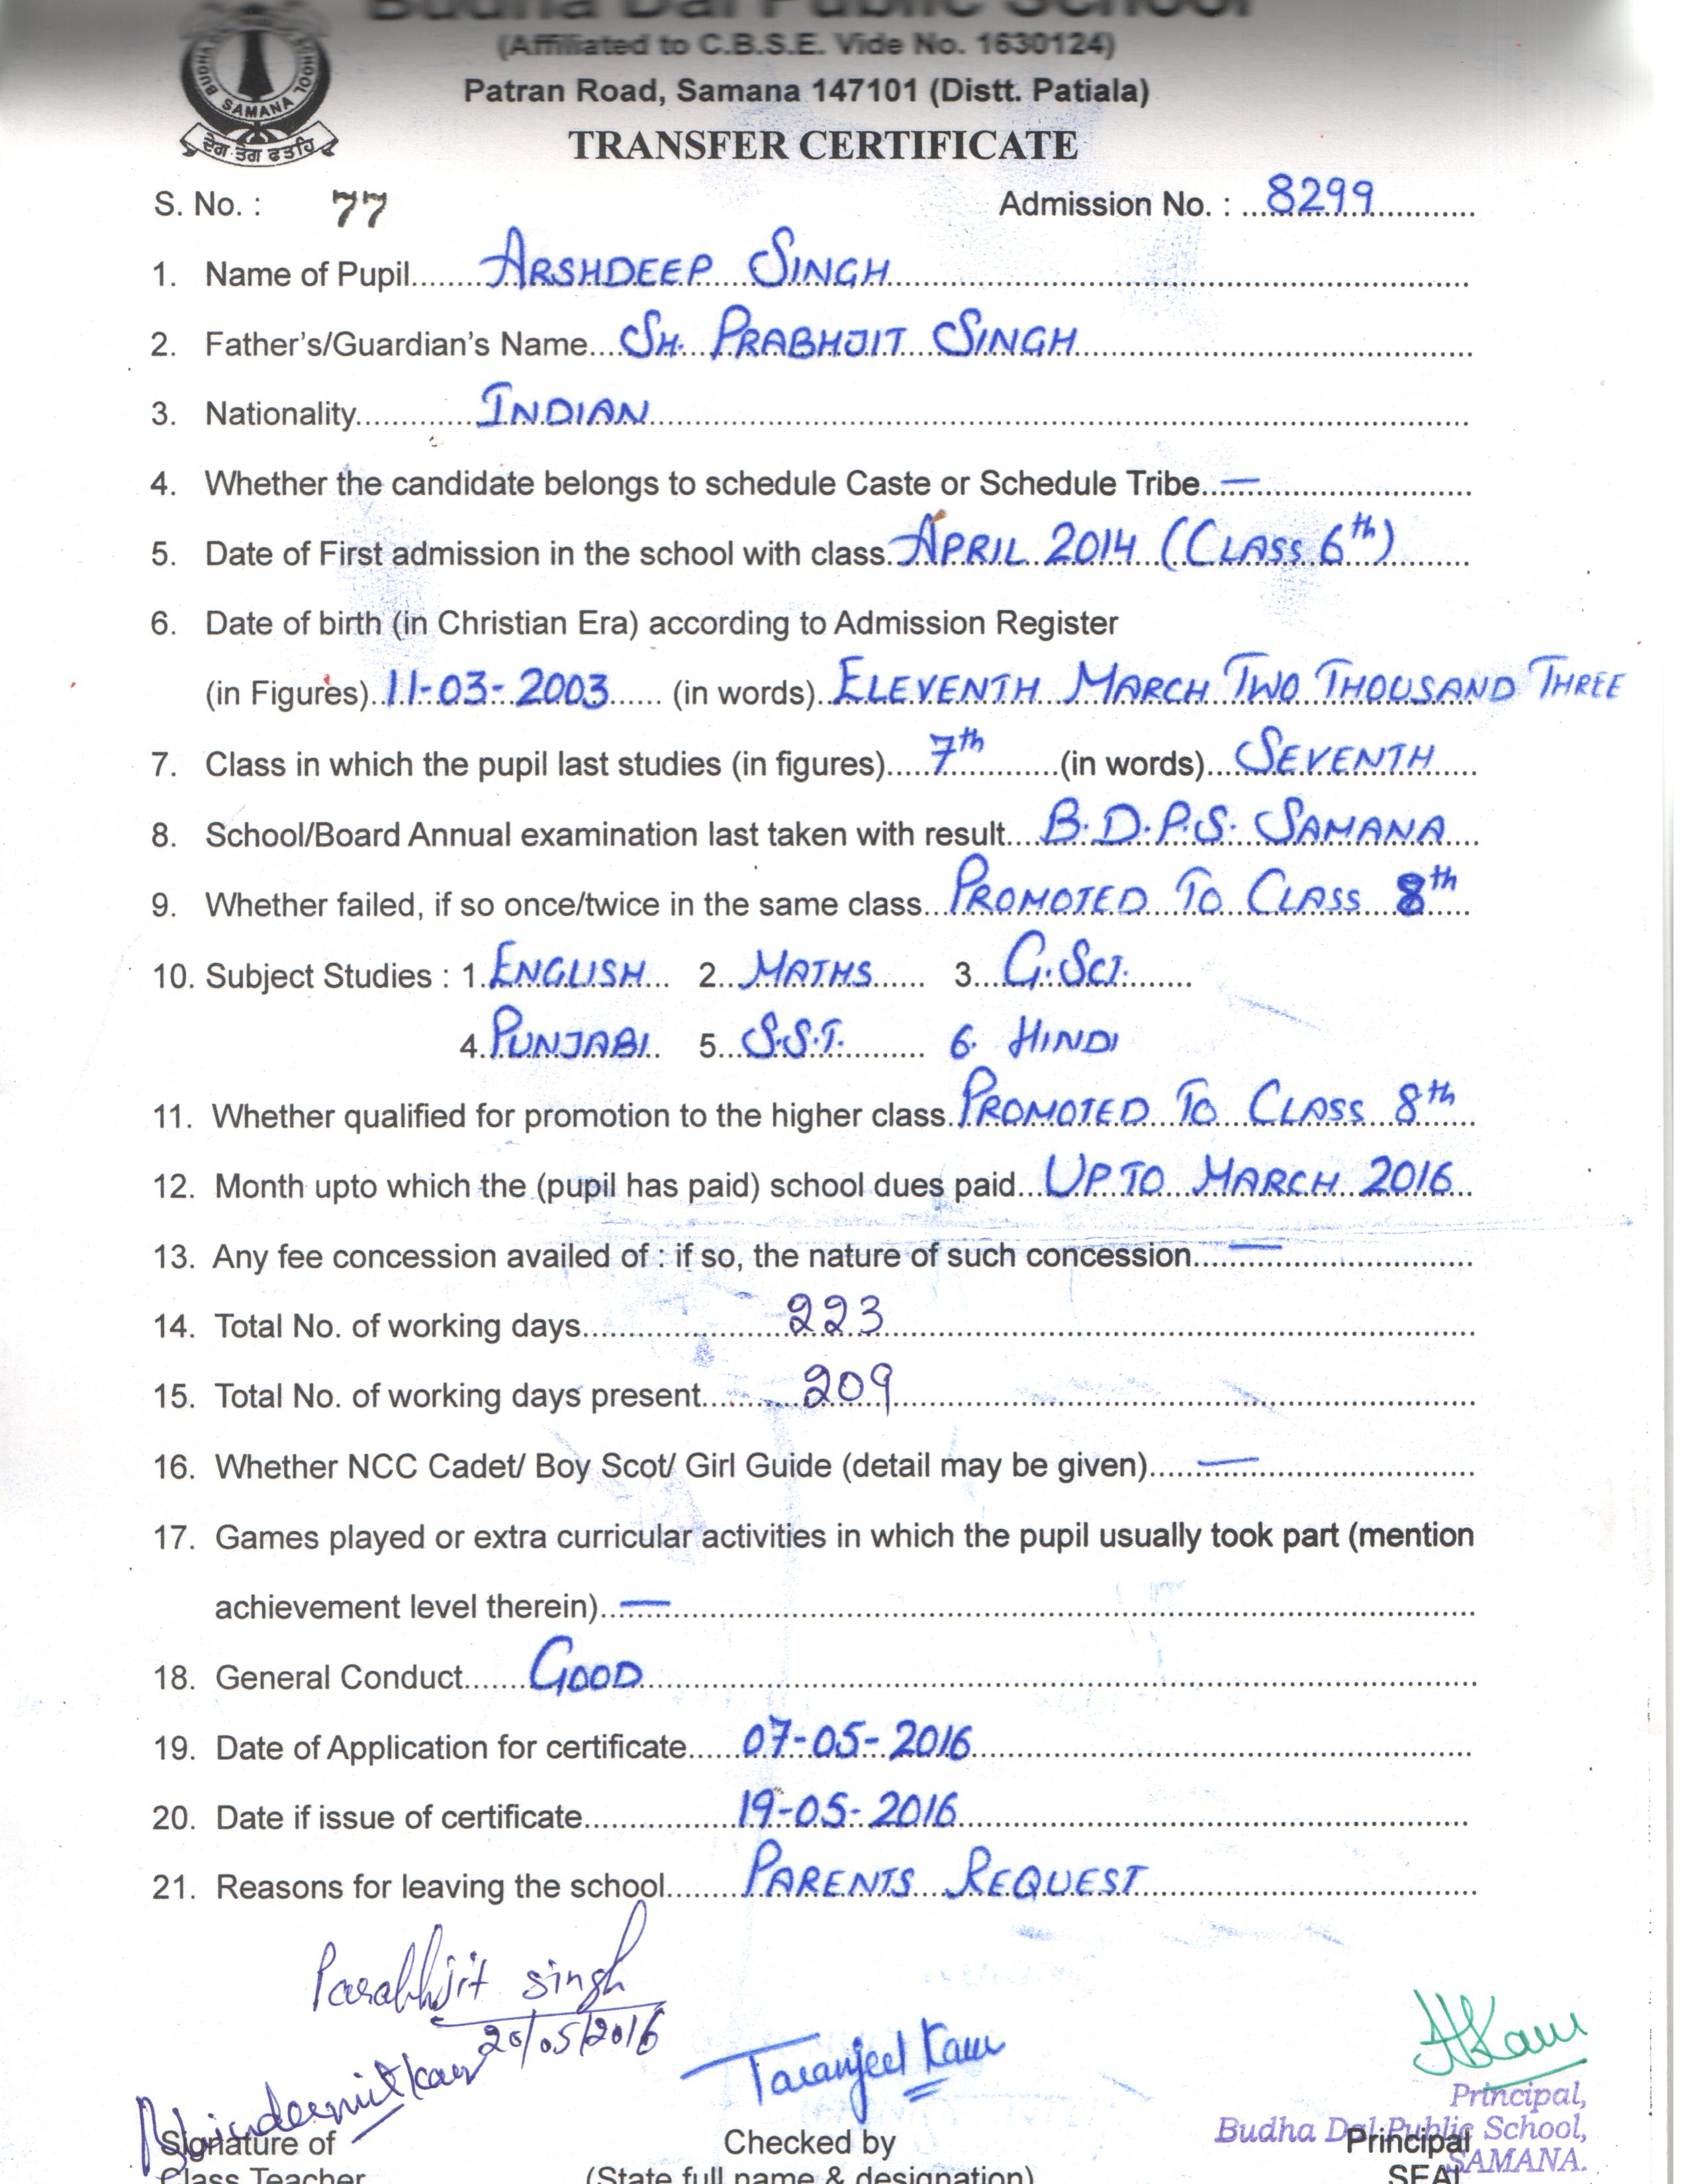 Budha Dal Public School
(Affiliated to C.B.S.E. Vide No. 1630124)
Patran Road, Samana 147101 (Distt. Patiala)
SAMANA
ਦੇਗ ਤੇਗ ਫਤਹਿ
TRANSFER CERTIFICATE
S. No. : 77 Admission No. : 8299
1. Name of Pupil ARSHDEEP SINGH
2. Father's/Guardian's Name SH. PRABHJIT SINGH
3. Nationality INDIAN
4. Whether the candidate belongs to schedule Caste or Schedule Tribe —
5. Date of First admission in the school with class APRIL 2014 (CLASS 6th)
6. Date of birth (in Christian Era) according to Admission Register
(in Figures) 11-03-2003 (in words) ELEVENTH MARCH TWO THOUSAND THREE
7. Class in which the pupil last studies (in figures) 7th (in words) SEVENTH
8. School/Board Annual examination last taken with result B.D.P.S. SAMANA
9. Whether failed, if so once/twice in the same class PROMOTED TO CLASS 8th
10. Subject Studies : 1. ENGLISH 2. MATHS 3. G.SCI.
4. PUNJABI 5. S.S.T. 6. HINDI
11. Whether qualified for promotion to the higher class PROMOTED TO CLASS 8th
12. Month upto which the (pupil has paid) school dues paid UPTO MARCH 2016
13. Any fee concession availed of : if so, the nature of such concession —
14. Total No. of working days 223
15. Total No. of working days present 209
16. Whether NCC Cadet/ Boy Scot/ Girl Guide (detail may be given) —
17. Games played or extra curricular activities in which the pupil usually took part (mention
achievement level therein) —
18. General Conduct GOOD
19. Date of Application for certificate 07-05-2016
20. Date if issue of certificate 19-05-2016
21. Reasons for leaving the school PARENTS REQUEST
Parabhjit singh
20/05/2016
Taranjeet Kaur
Principal,
Budha Dal Public School,
SAMANA.
Signature of Checked by Principal
Class Teacher (State full name & designation) SEAL